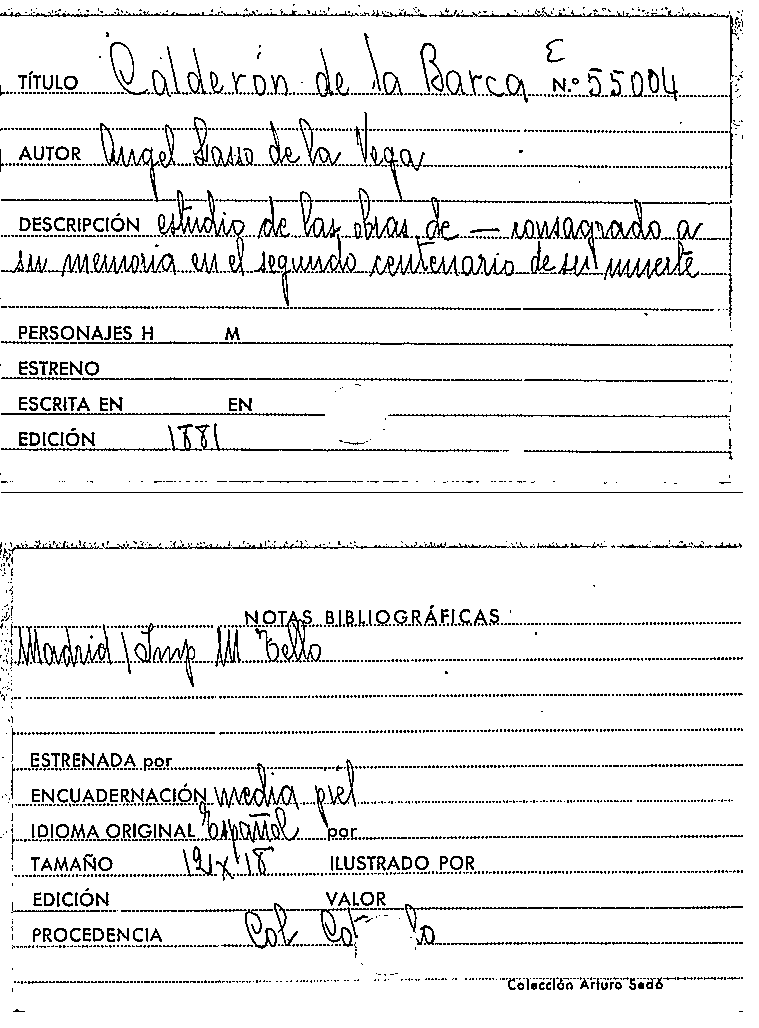 TÍTULO Calderón de la Barca E N.º 55004
AUTOR Angel Lasso de la Vega
DESCRIPCIÓN estudio de las obras de — consagrado a
su memoria en el segundo centenario de su muerte
PERSONAJES H M
ESTRENO
ESCRITA EN EN
EDICIÓN 1881
NOTAS BIBLIOGRÁFICAS
Madrid / Imp M Tello
ESTRENADA por
ENCUADERNACIÓN media piel
IDIOMA ORIGINAL Español por
TAMAÑO x 18 ILUSTRADO POR
EDICIÓN VALOR
PROCEDENCIA Col
Colección Arturo Sedó